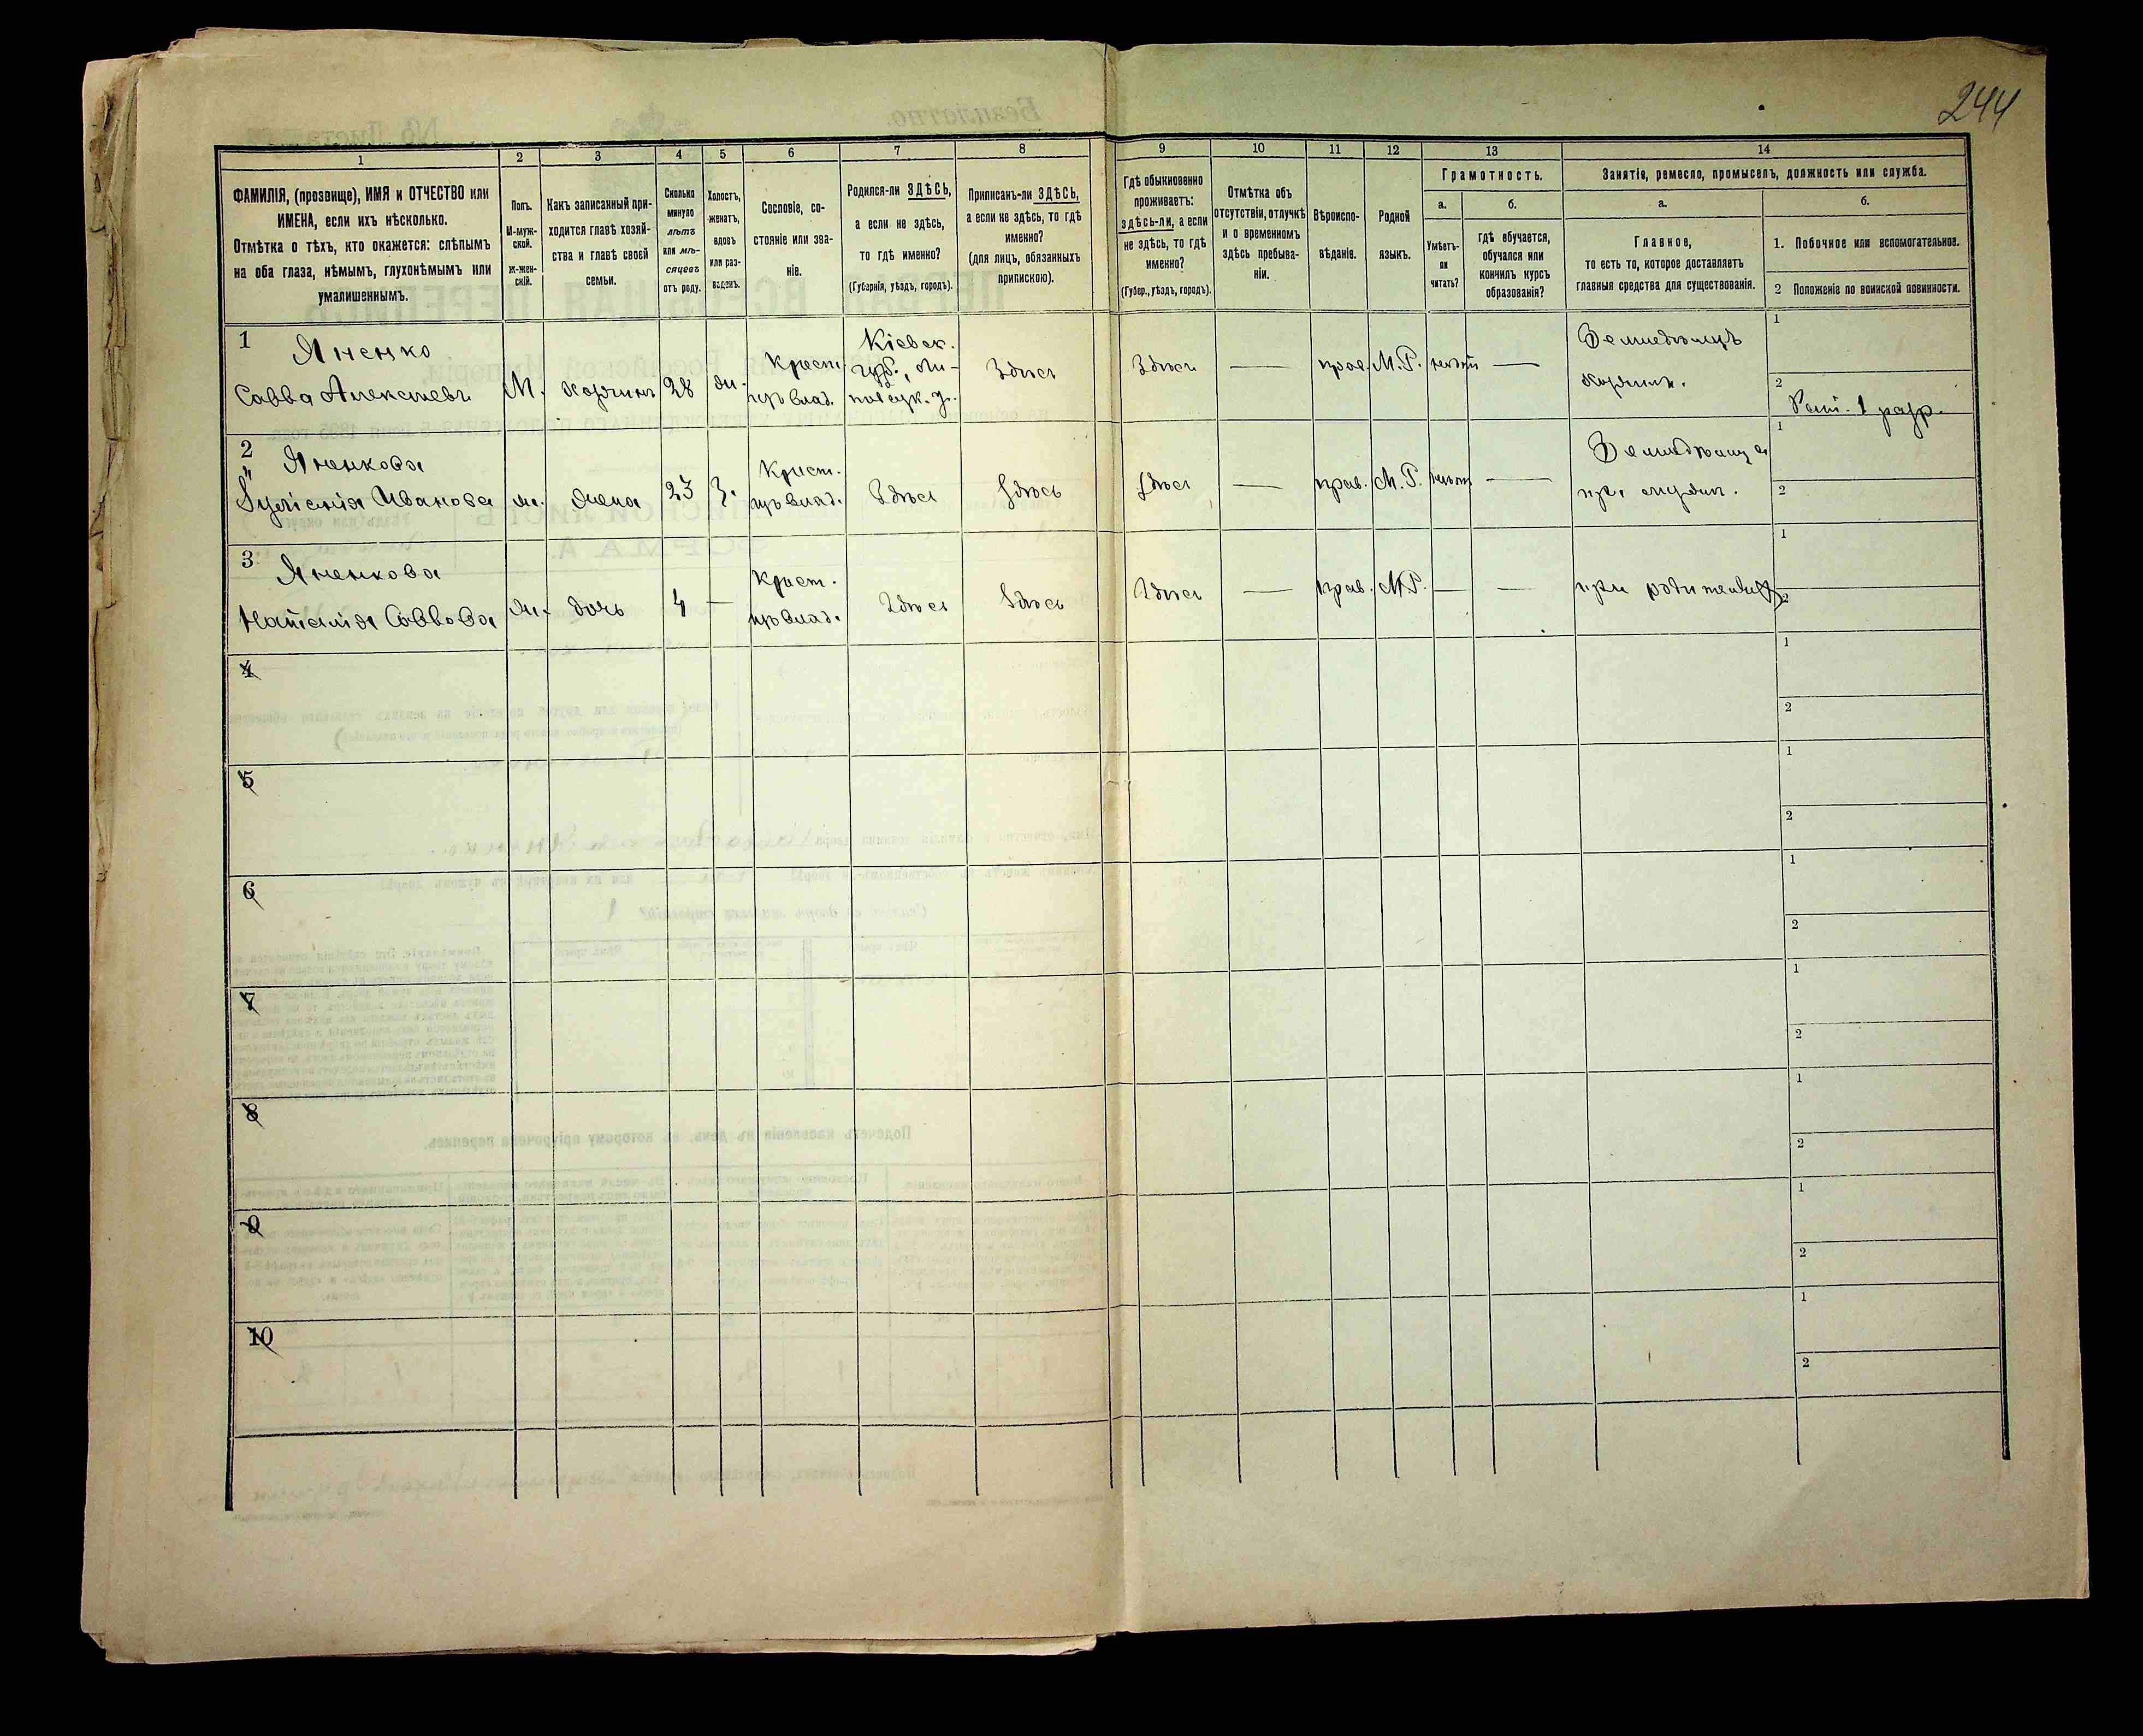 244
1
2
3
4
5
6
7
8
9
10
11
12
13
14
ФАМИЛІЯ, (прозвище), ИМЯ и ОТЧЕСТВО или
ИМЕНА, если ихъ нѣсколько.
Отмѣтка о тѣхъ, кто окажется: слѣпымъ
на оба глаза, нѣмымъ, глухонѣмымъ или
умалишеннымъ.
Полъ.
М-муж-
ской.
Ж-жен-
скій.
Какъ записанный при-
ходится главѣ хозяй-
ства и главѣ своей
семьи.
Сколько
минуло
лѣтъ
или мѣ-
сяцевъ
отъ роду.
Холостъ,
женатъ,
вдовъ
или раз-
веденъ.
Сословіе, со-
стояніе или зва-
ніе.
Родился-ли ЗДѢСЬ,
а если не здѣсь,
то гдѣ именно?
(Губернія, уѣздъ, городъ).
Приписанъ-ли ЗДѢСЬ,
а если не здѣсь, то гдѣ
именно?
(для лицъ, обязанныхъ
припискою).
Гдѣ обыкновенно
проживаетъ:
здѣсь-ли, а если
не здѣсь, то гдѣ
именно?
(Губер., уѣздъ, городъ).
Отмѣтка объ
отсутствіи, отлучкѣ
и о временномъ
здѣсь пребыва-
ніи.
Вѣроиспо-
вѣданіе.
Родной
языкъ.
Грамотность.
а.
б.
Умѣетъ-
ли
читать?
Гдѣ обучается,
обучался или
кончилъ курсъ
образованія?
Занятіе, ремесло, промыселъ, должность или служба.
а.
б.
Главное,
то есть то, которое доставляетъ
главныя средства для существованія.
1. Побочное или вспомогательное.
2 Положеніе по воинской повинности.
1
Яненко
Савва Алексѣевъ
М.
хозяинъ
28
ж.
Крест.
изъ влад.
Кіевск.
губ., Ли-
повецк. у.
Здѣсь
Здѣсь
—
прав.
М.Р.
нѣтъ
—
Земледѣлецъ
хозяинъ.
1
2
Рат. 1 разр.
2
Яненкова
Иванова
ж.
жена
23
З.
Крест.
изъ влад.
Здѣсь
Здѣсь
Здѣсь
—
прав.
М.Р.
нѣтъ
—
Земледѣлица
при мужѣ.
1
2
3
Яненкова
Наталія Саввова
ж.
дочь
4
—
Крест.
изъ влад.
Здѣсь
Здѣсь
Здѣсь
—
прав.
М.Р.
—
—
при родителяхъ
1
2
4
1
2
5
1
2
6
1
2
7
1
2
8
1
2
9
1
2
10
1
2